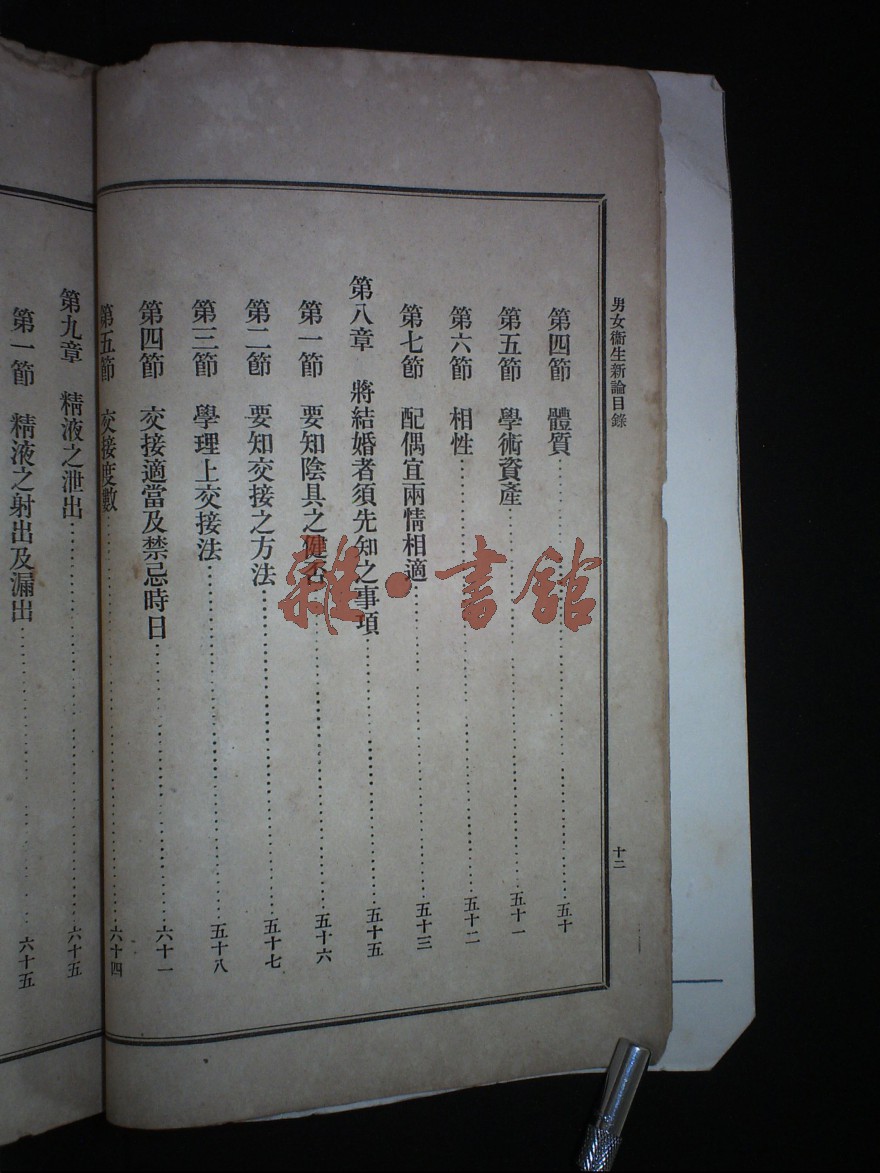 男女衞生新論目錄
十二
第四節 體質 五十
第五節 學術資產 五十一
第六節 相性 五十二
第七節 配偶宜兩情相適 五十三
第八章 將結婚者須先知之事項 五十五
第一節 要知陰具之健否 五十六
第二節 要知交接之方法 五十七
第三節 學理上交接法 五十八
第四節 交接適當及禁忌時日 六十一
第五節 交接度數 六十四
第九章 精液之泄出 六十五
第一節 精液之射出及漏出 六十五
雜·書館